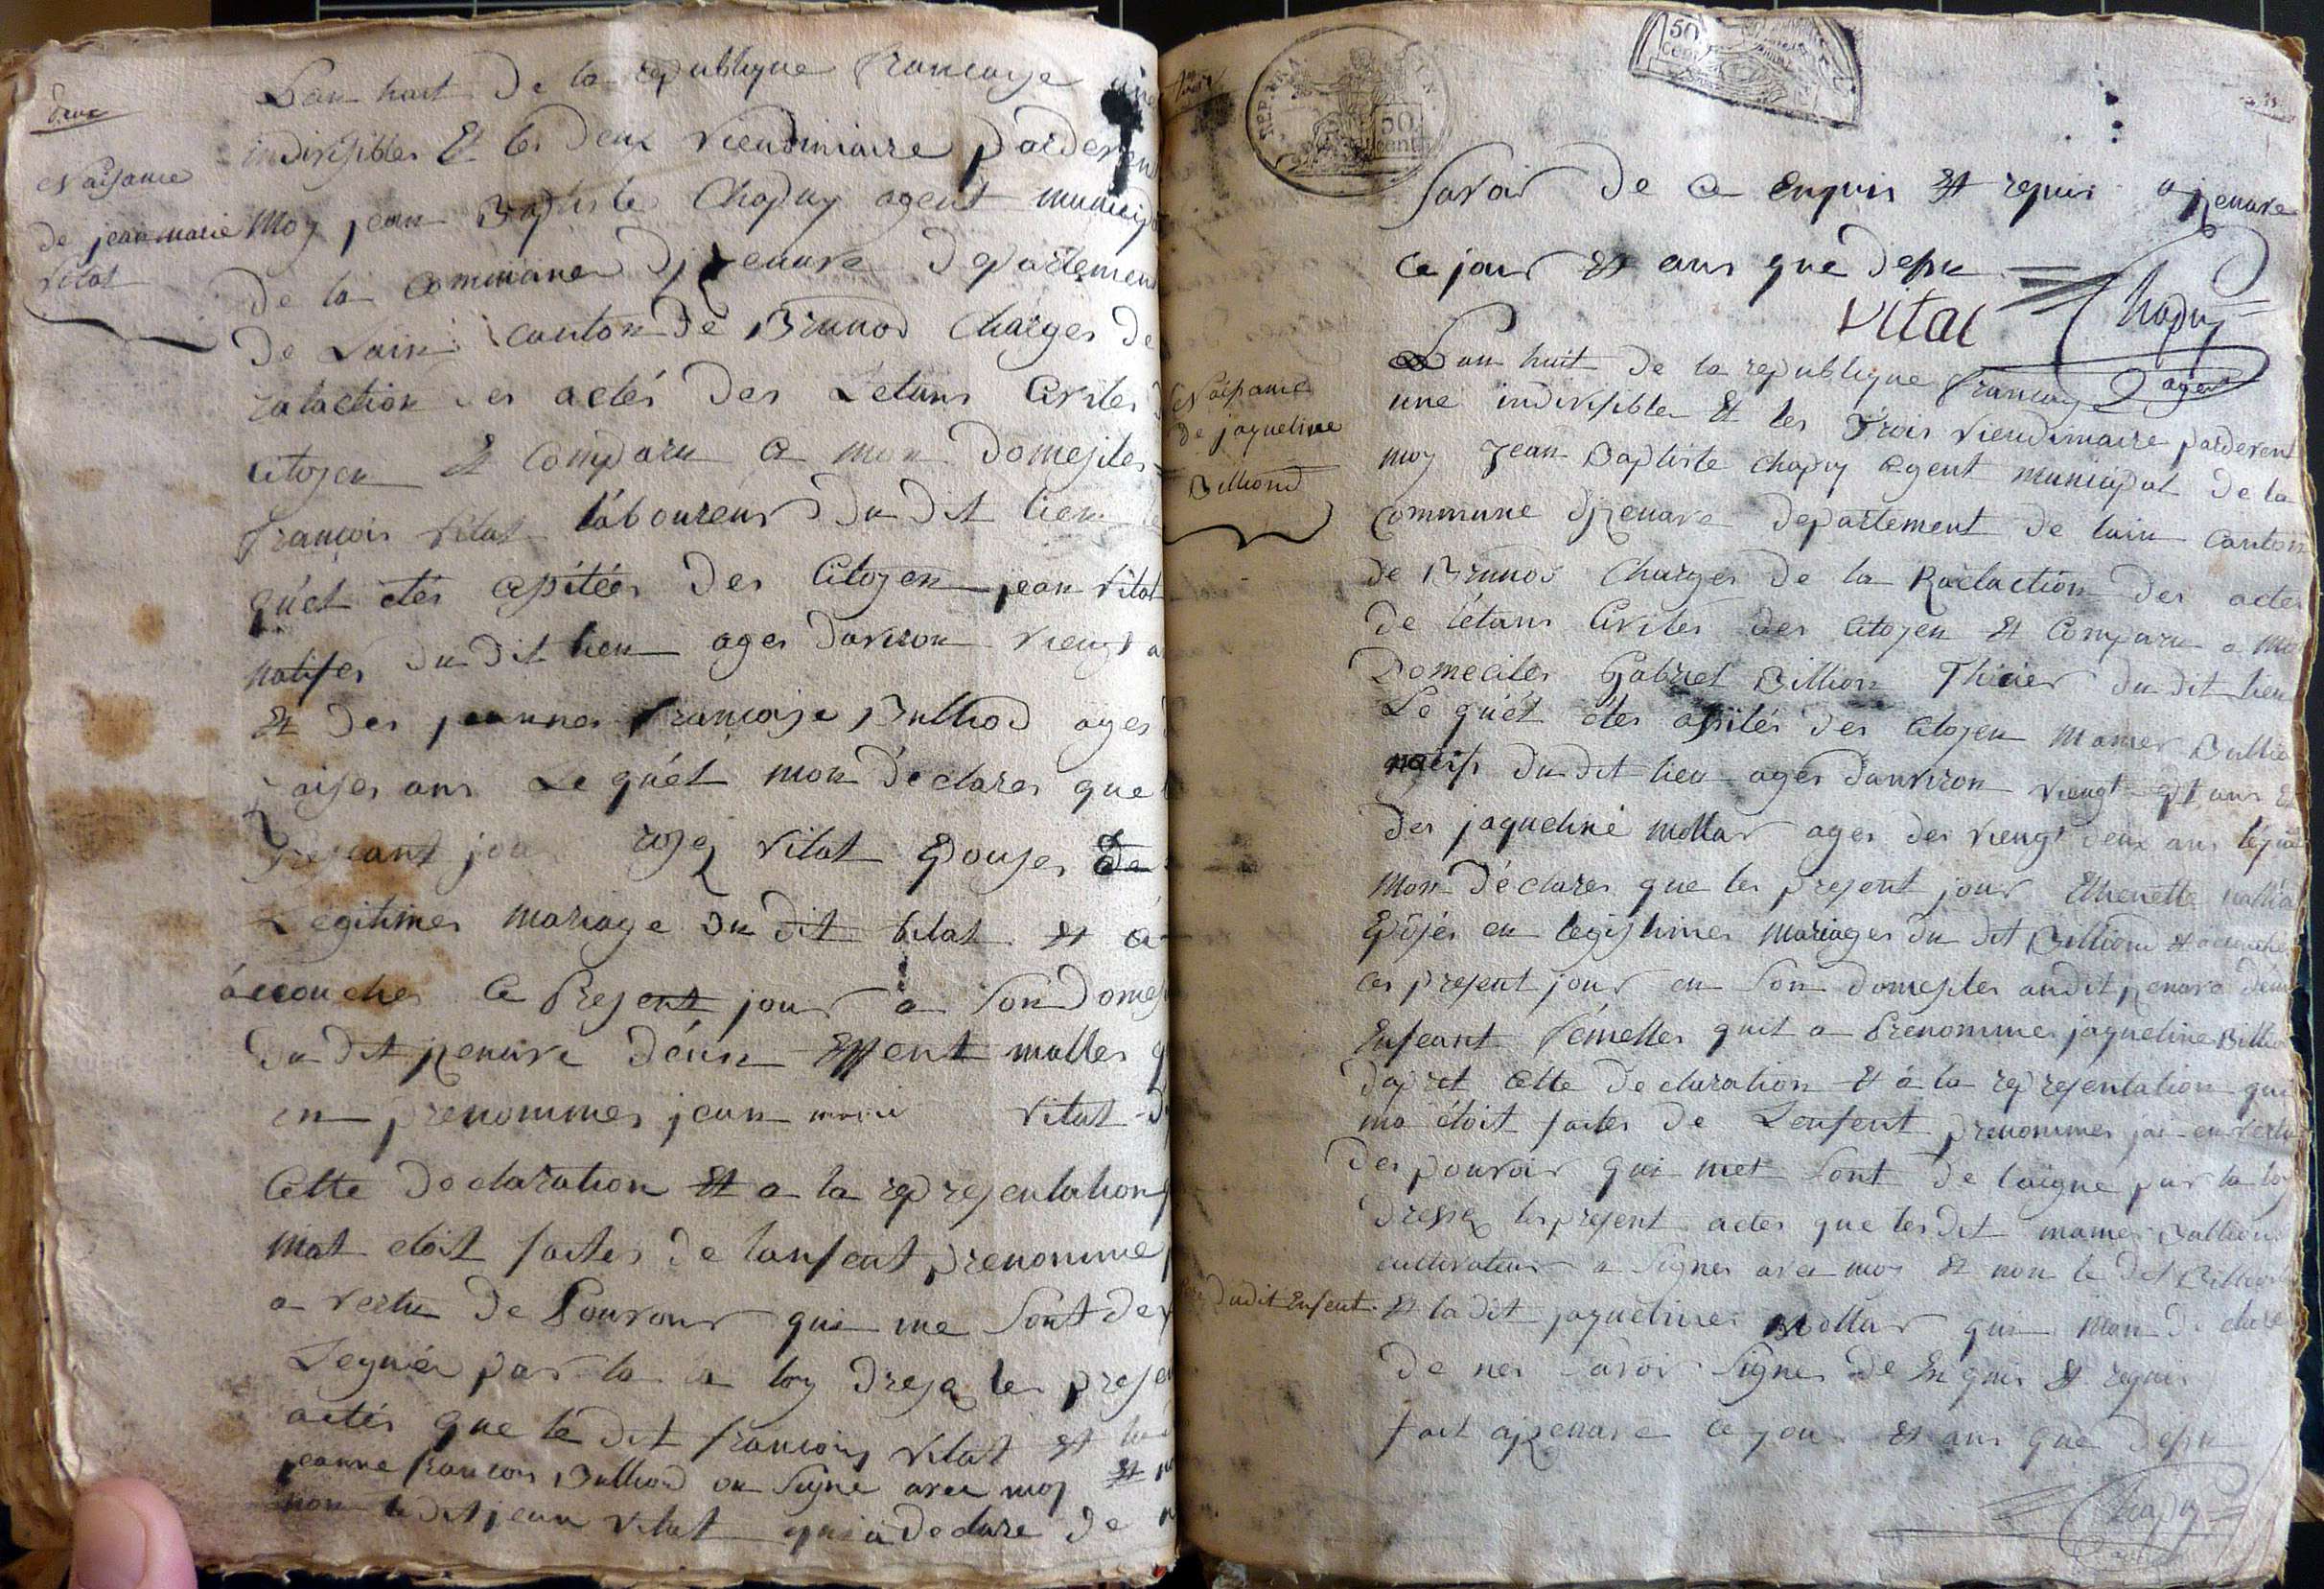 deux
Naisance
de jean marie
Vitat
Lan huit de la republique francaise une
indivisibles Et les deux viendimiaire pardevent
moy jean Baptiste Chapuy agent municip
de la Commune djzenave departement
de Lain canton de Brunod Charges de
rataction des actes des Letans Civiles
Citoyen Et Comparu a mon Domejiles
françois Vitat laboureur du dit lieu
quet etés asitées des Citoyen jean Vitat
natifes du dit lieu ages danviron viengt
Et des jeannes francoise Bulliod ages
saises ans Le quét mon déclares que
present jour rose Vitat Epouses de
Legitimes mariage du dit Vitat Et a
áccouches Ce Present jour a Son Domej
du dit jzenave déun Enfent malles
en prenommes jean marie Vitat
Cette declaration Et a la representation
mat etoit faites de lanfent prenomme
a vertu de Pouvour qui me Sont de
Legnée par la la loy drese les prese
actés que le dit francois Vitat Et
jeanne francois Bulliod on Signe avec moy Et
non le dit jean Vitat qui a declare de
REP. FRA
50
cent
50
cent
Savoir de Ce Enquis Et requis ajzenave
Ce jour Et ans que desu
Vital Chapuy
agent
Naisance
de jaqueline
Billiond
Lan huit de la republique francaise
une indivisibles Et les trois viendimaire pardevent
moy Jean Baptiste chapuy agent municipal de la
Commune djzenave departement de lain Canton
de Brunod Charges de la Radaction des actes
de létans Civiles des Citoyen Et Comparu a mo
Domeciles Gabriel Billion Thicier du dit lieu
Le quét etes asités des Citoyen mamer Bullio
natifs du dit lieu ages danviron viengt sept ans Et
des jaqueline mollar ages des viengt deux ans léquet
mon déclares que les present jour Ethenette
Epósés en legistimes mariages du dit Billiond Et accouches
ces present jour en Son domesiles audit jzenave déun
Enfeant fémelles quit a Prenommes jaqueline Billio
dapret Cette declaration Et a la representation qui
ma étoit faites de Lenfent prenommes jai en vertu
des pouvoir qui met Sont de laigne par la loy
dresse les present actes que les dit mamer Bulliond
cultivateur a Signes avec moy Et non le dit Billion
dudit Enfent. Et la dit jaquelines Mollar qui mon declare
de nes Savoir Signes de Enquis Et requis
fait ajzenave ce jour Et ans que desu
Chapuy
agent